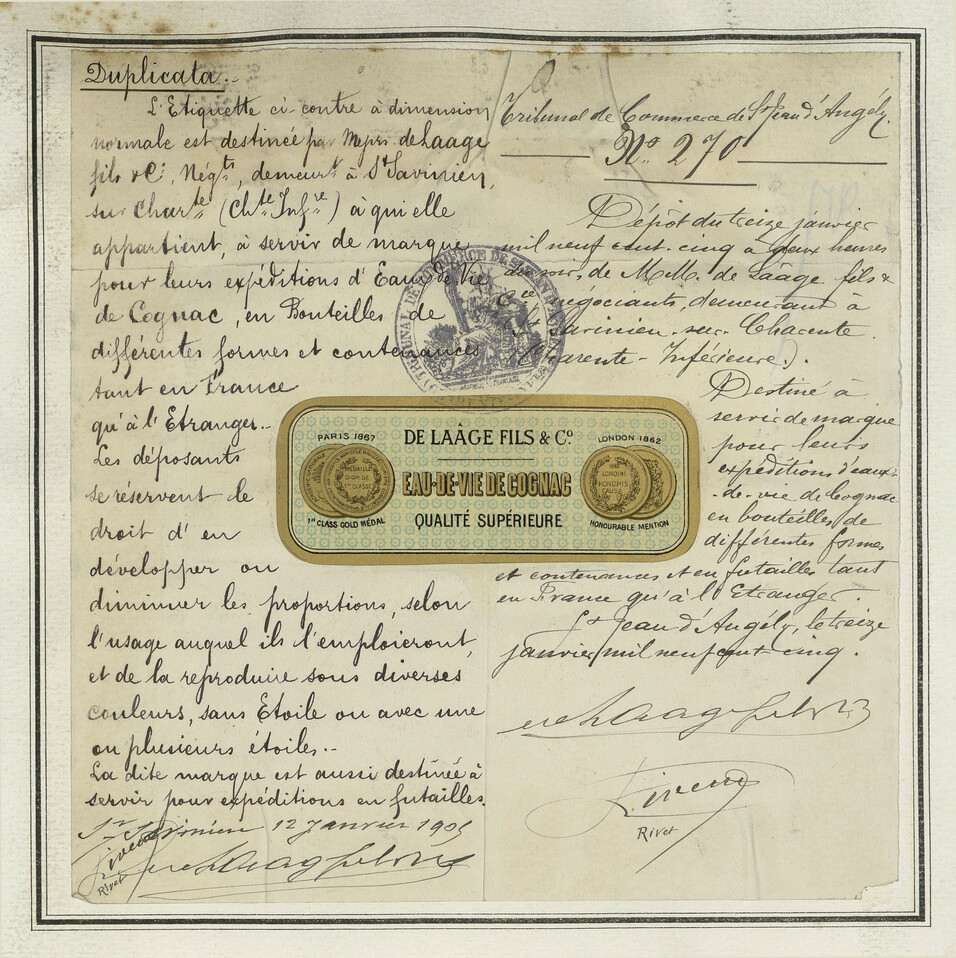 Duplicata.-
L'Etiquette ci-contre à dimension
normale est destinée par de Laage
fils & Cie, Négts, demeurt à St Savinien,
sur Charte (Chte Infre) à qui elle
appartient, à servir de marque
pour leurs expéditions d'Eaux-de-Vie
de Cognac, en Bouteilles de
différentes formes et contenances
tant en France
qu'à l'Etranger.-
Les déposants
se réservent le
droit d'en
développer ou
diminuer les proportions, selon
l'usage auquel ils l'emploieront,
et de la reproduire sous diverses
couleurs, sans Etoile ou avec une
ou plusieurs étoiles.-
La dite marque est aussi destinée à
servir pour expéditions en futailles.
St Savinien 12 Janvier 1905
Rivet
Tribunal de Commerce de St Jean d'Angély.
No. 270
Dépôt du treize janvier
mil neuf cent cinq à deux heures
du soir, de M.M. de Laage fils &
Cie négociants, demeurant à
St Savinien-sur-Charente
(Charente-Inférieure).
Destiné à
servir de marque
pour leurs
expéditions d'eaux-
-de-vie de Cognac
en bouteilles de
différentes formes
et contenances et en futailles tant
en France qu'à l'Etranger.
St Jean d'Angély, le treize
janvier mil neuf cent cinq.
Rivet
PARIS 1867
1ST CLASS GOLD MEDAL
DE LAÂGE FILS & Co
EAU-DE-VIE DE COGNAC
QUALITÉ SUPÉRIEURE
LONDON 1862
LONDINI
HONORIS
CAUSA
HONOURABLE MENTION
MÉDAILLE
D'OR DE
1RE CLASSE